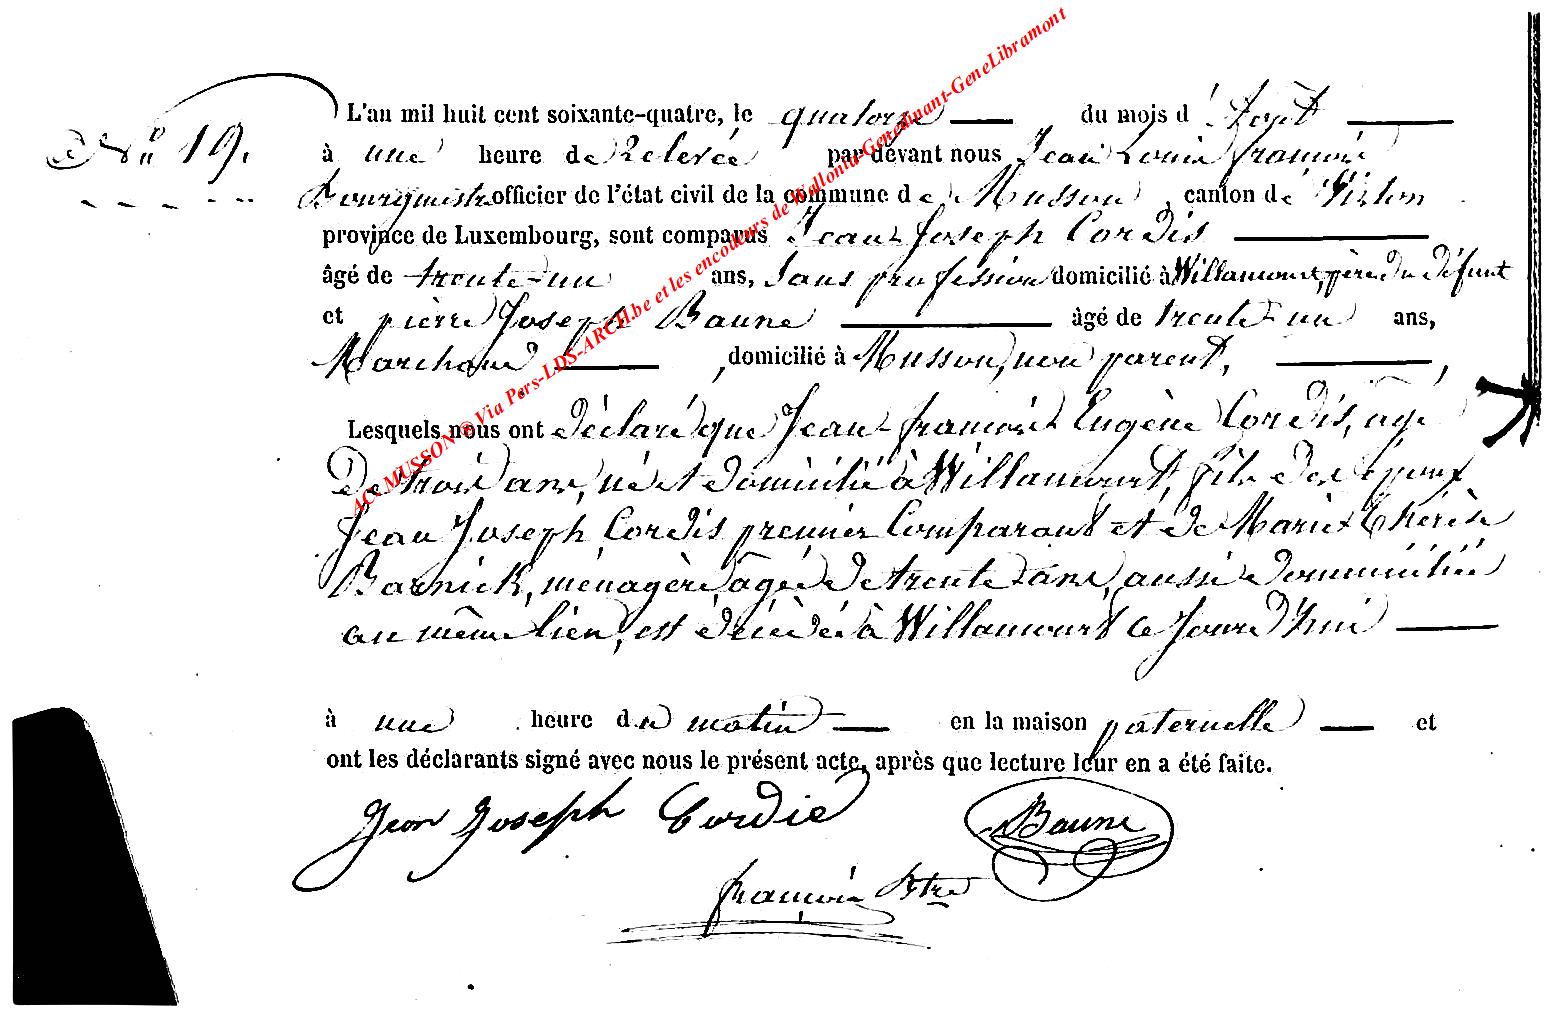 N° 19.
L'an mil huit cent soixante-quatre, le quatorze du mois d'Août
à une heure de Relevée par devant nous Jean Louis françois
Bourgmestre officier de l'état civil de la commune de Musson, canton de Virton
province de Luxembourg, sont comparus Jean Joseph Cordis
âgé de trente-un ans, Sans profession domicilié à Willancourt, père du défunt
et pierre Joseph Baune âgé de trente-un ans,
Marchand, domicilié à Musson, non parent,
Lesquels nous ont déclaré que Jean françois Eugène Cordis, agé
De trois ans, né et domicilié à Willancourt, fils des époux
Jean Joseph Cordis premier Comparant et de Marie Thérèse
Barnick, ménagère âgée de trente ans, aussi domiciliée
au même lieu, est décédé à Willancourt ce Jourd'hui
à une heure du matin en la maison paternelle et
ont les déclarants signé avec nous le présent acte, après que lecture leur en a été faite.
Jean Joseph Cordié
Baune
françois Btre
AC MUSSON ® Via Pers-LDS-ARCH.be et les encodeurs de Wallonia-Genedinant-GeneLibramont